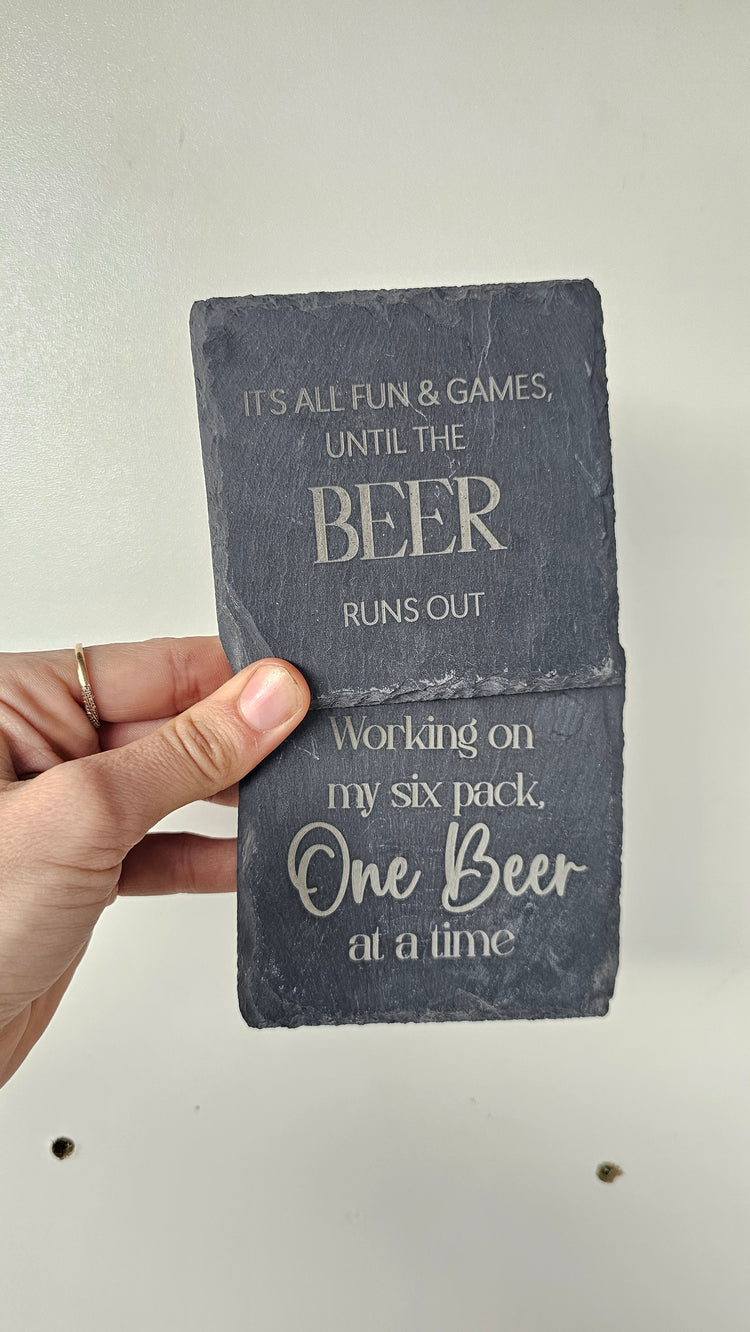 IT'S ALL FUN & GAMES,
UNTIL THE
BEER
RUNS OUT
Working on
my six pack,
One Beer
at a time